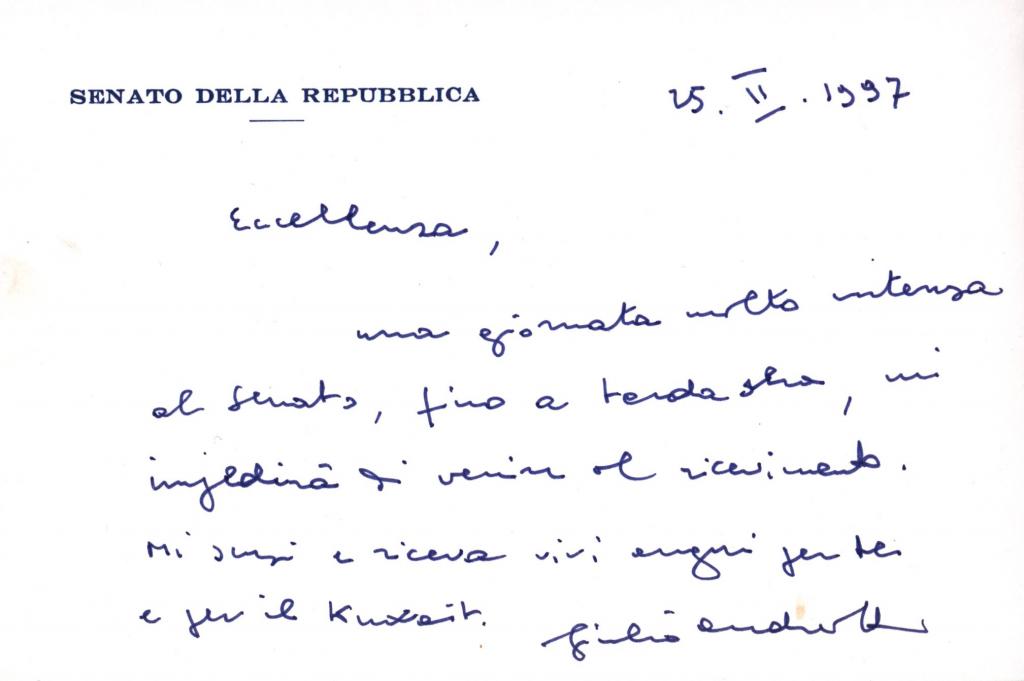 SENATO DELLA REPUBBLICA
25. II. 1997
Eccellenza,
una giornata molto intensa
al Senato, fino a tarda sera, mi
impedirà di venire al ricevimento.
Mi scusi e riceva vivi auguri per Lei
e per il Kuwait.
Giulio Andreotti